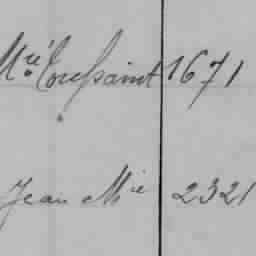 Mré Toussaint 1671
Jean Mie 2321